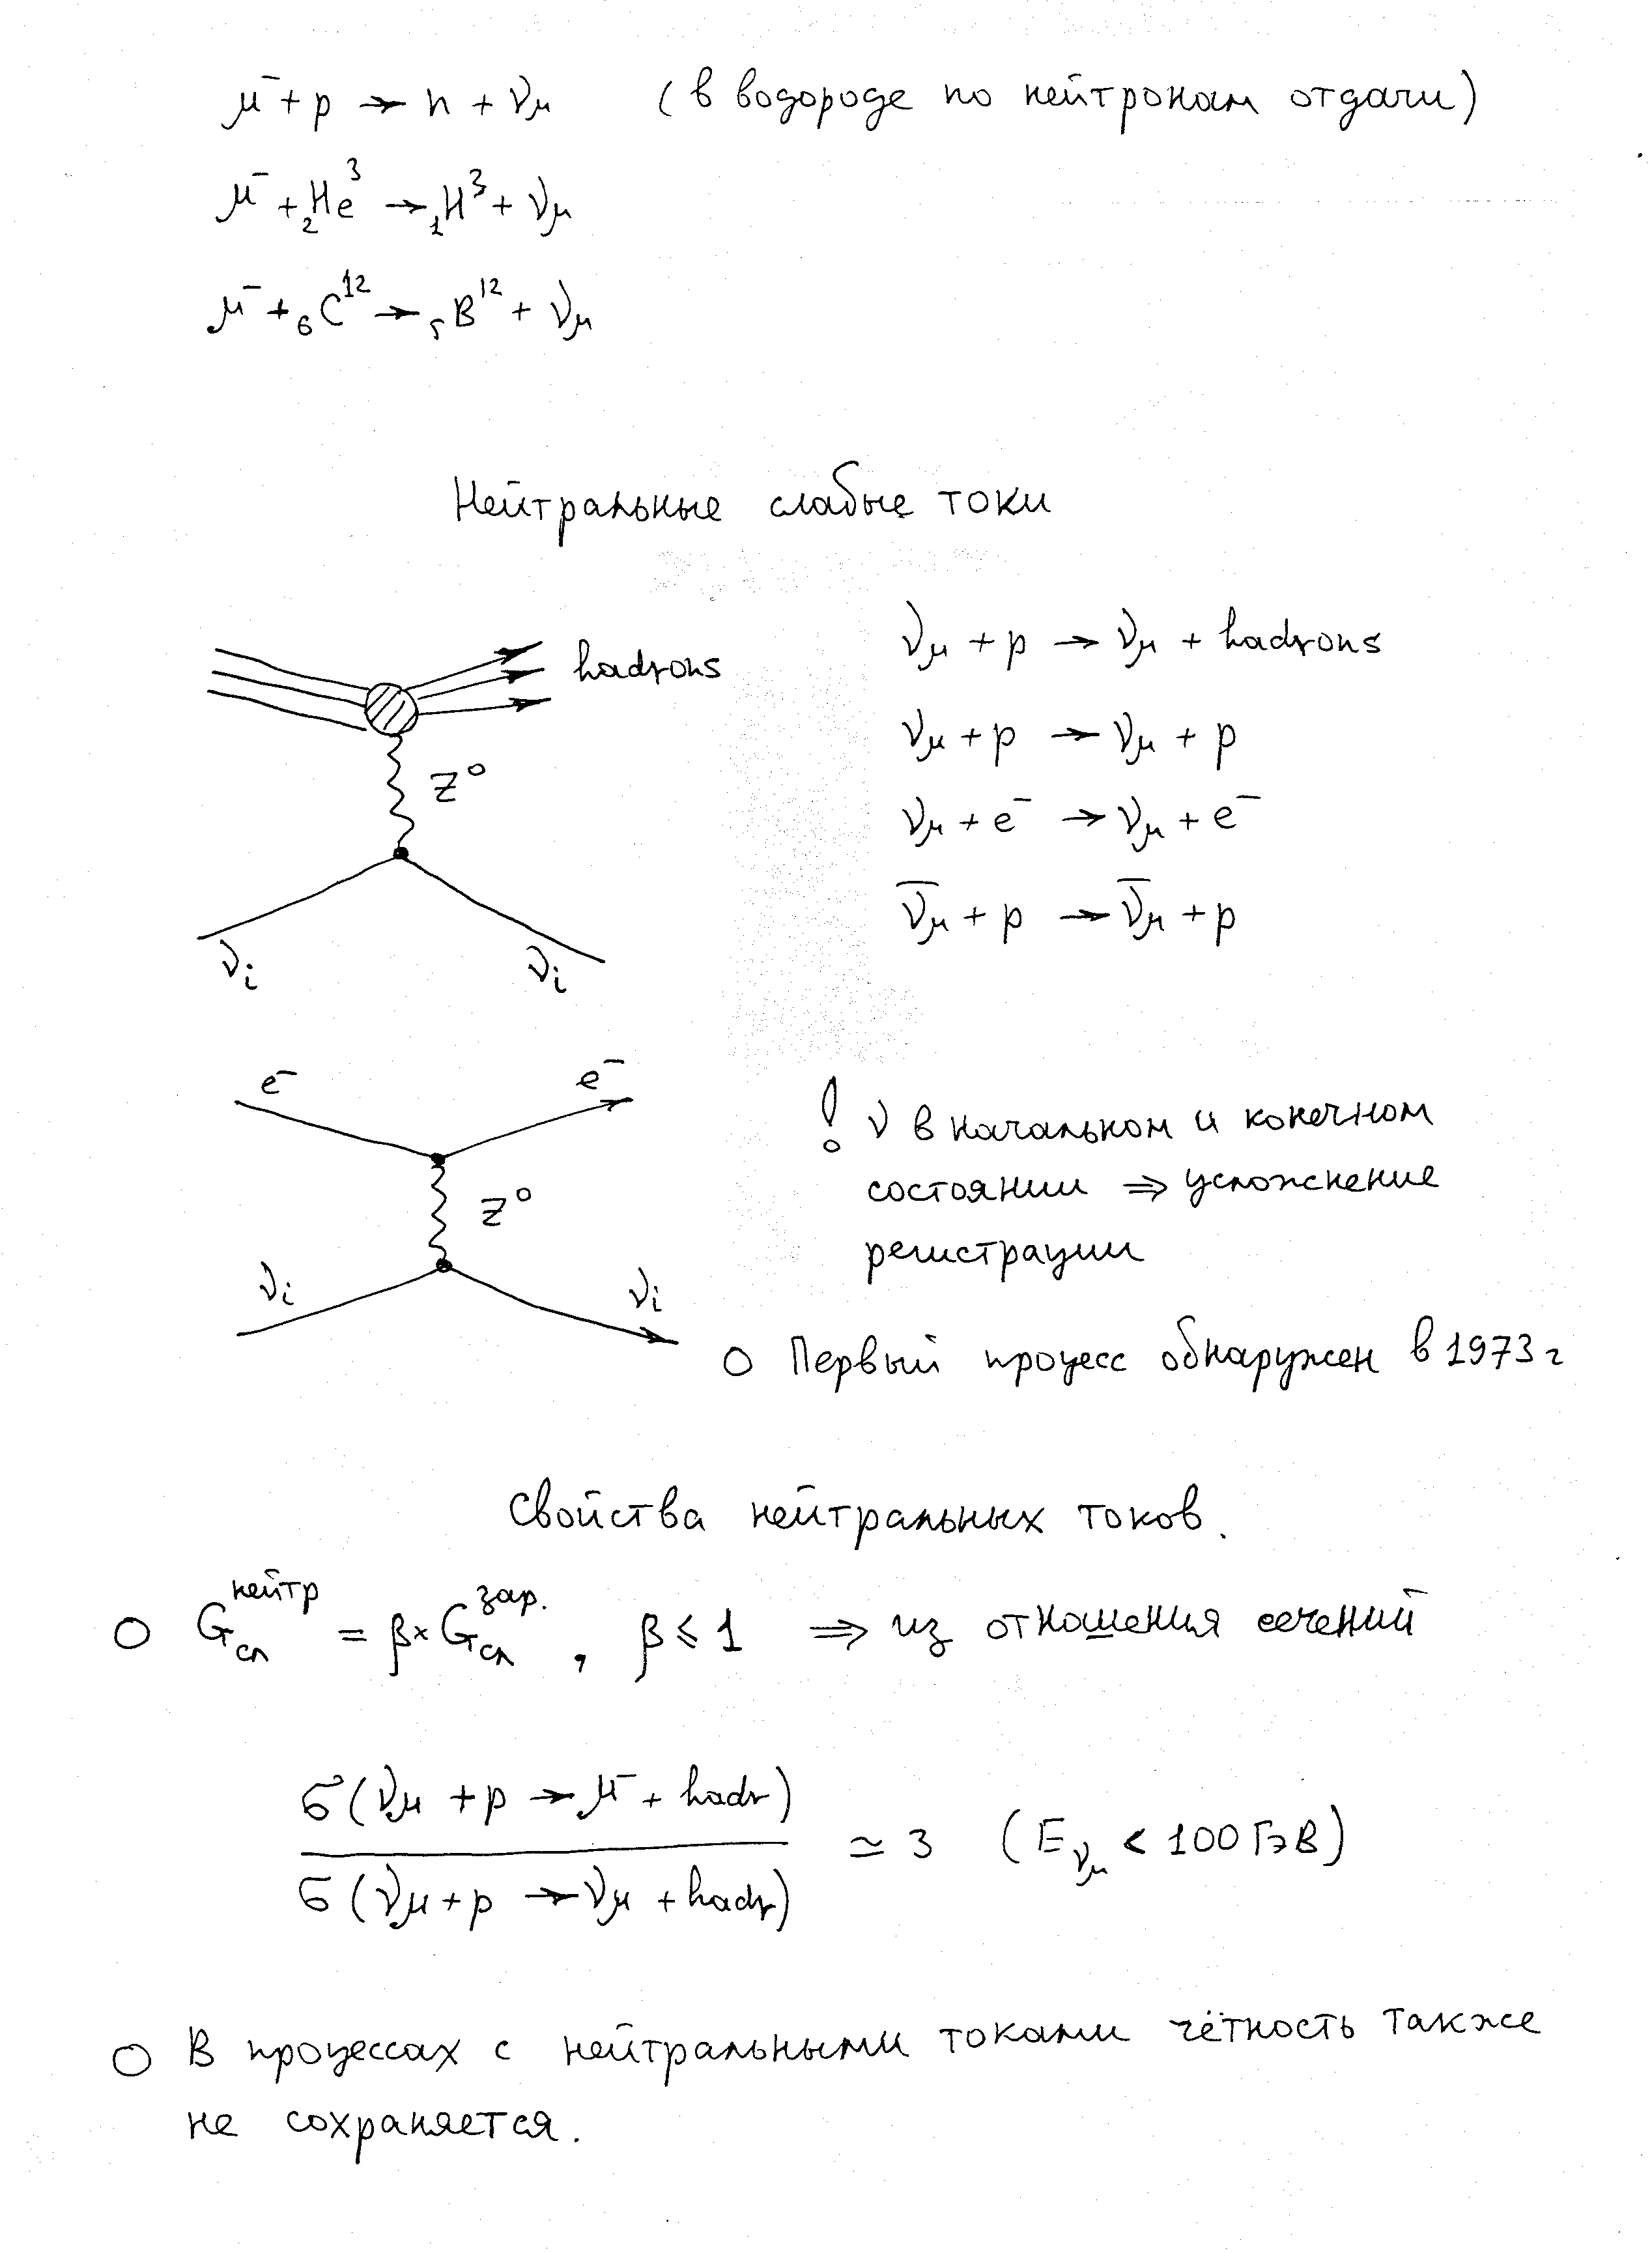 μ⁻ + p → n + ν_μ (в водороде по нейтронам отдачи)
μ⁻ + ₂He³ → ₁H³ + ν_μ
μ⁻ + ₆C¹² → ₅B¹² + ν_μ
Нейтральные слабые токи
hadrons
Z⁰
ν_i ν_i
ν_μ + p → ν_μ + hadrons
ν_μ + p → ν_μ + p
ν_μ + e⁻ → ν_μ + e⁻
ν̄_μ + p → ν̄_μ + p
e⁻ e⁻
Z⁰
ν_i ν_i
! ν в начальном и конечном
состоянии ⇒ усложнение
регистрации
○ Первый процесс обнаружен в 1973 г
Свойства нейтральных токов.
○ G_сл^нейтр = β × G_сл^зар. , β ⩽ 1 ⇒ из отношения сечений
σ(ν_μ + p → μ⁻ + hadr)
≃ 3 (E_ν_μ < 100 ГэВ)
σ(ν_μ + p → ν_μ + hadr)
○ В процессах с нейтральными токами чётность также
не сохраняется.